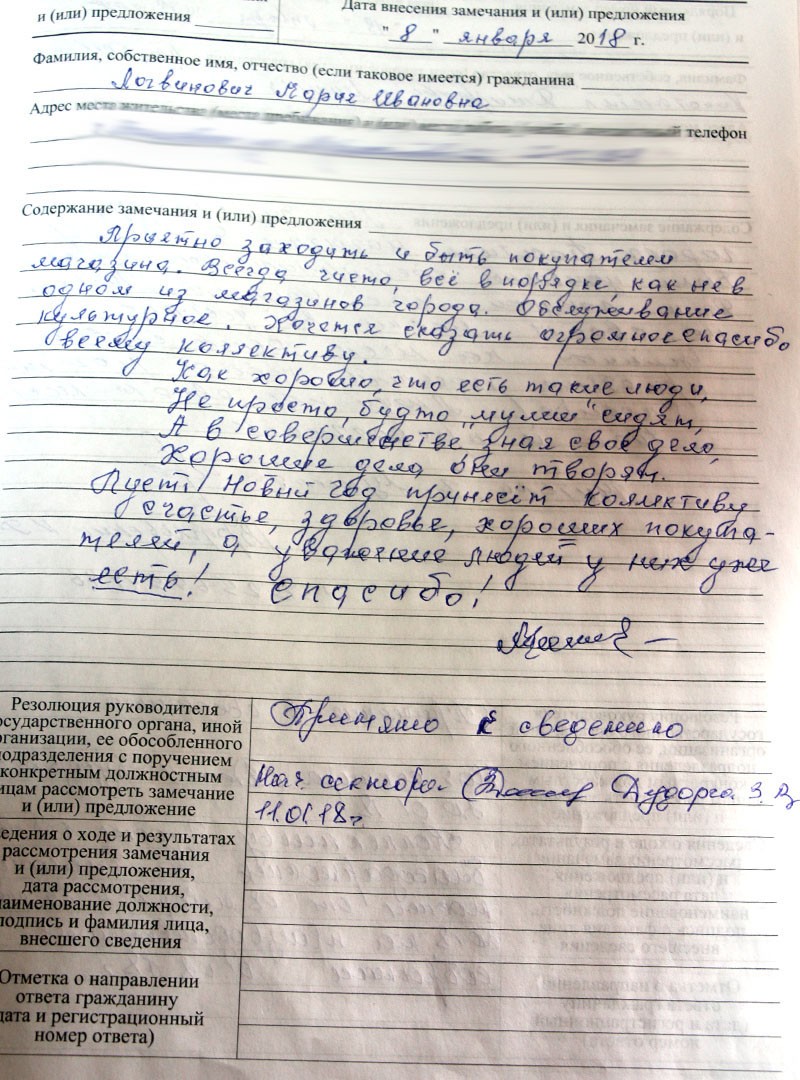 и (или) предложения
Дата внесения замечания и (или) предложения
"8" января 2018 г.
Фамилия, собственное имя, отчество (если таковое имеется) гражданина
Логвинович Мария Ивановна
Адрес места
телефон
Содержание замечания и (или) предложения
Приятно заходить и быть покупателем
магазина. Всегда чисто, всё в порядке, как не в
одном из магазинов города. Обслуживание
культурное. Хочется сказать огромное спасибо
всему коллективу.
Как хорошо, что есть такие люди,
Не просто, будто "мумии" сидят,
А в совершенстве зная своё дело,
Хорошие дела они творят.
Пусть Новый год принесёт коллективу
счастье, здоровье, хороших покупа-
телей, а уважение людей у них уже
есть! Спасибо!
Резолюция руководителя
осударственного органа, иной
рганизации, ее обособленного
подразделения с поручением
конкретным должностным
ицам рассмотреть замечание
и (или) предложение
Принято к сведению
Нач. сектора Дударга З.
11.01.18г
едения о ходе и результатах
рассмотрения замечания
и (или) предложения,
дата рассмотрения,
наименование должности,
подпись и фамилия лица,
внесшего сведения
Отметка о направлении
ответа гражданину
дата и регистрационный
номер ответа)